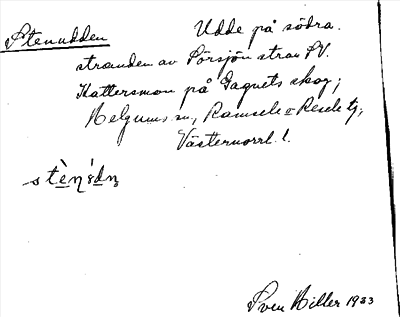 Stenudden
Udde på södra
stranden av Pörsjön strax SV.
Hattersmon på Gagnets skog;
Helgums sn, Ramsele o Resele tg,
Västernorrl. l.
Sven Hiller 1933